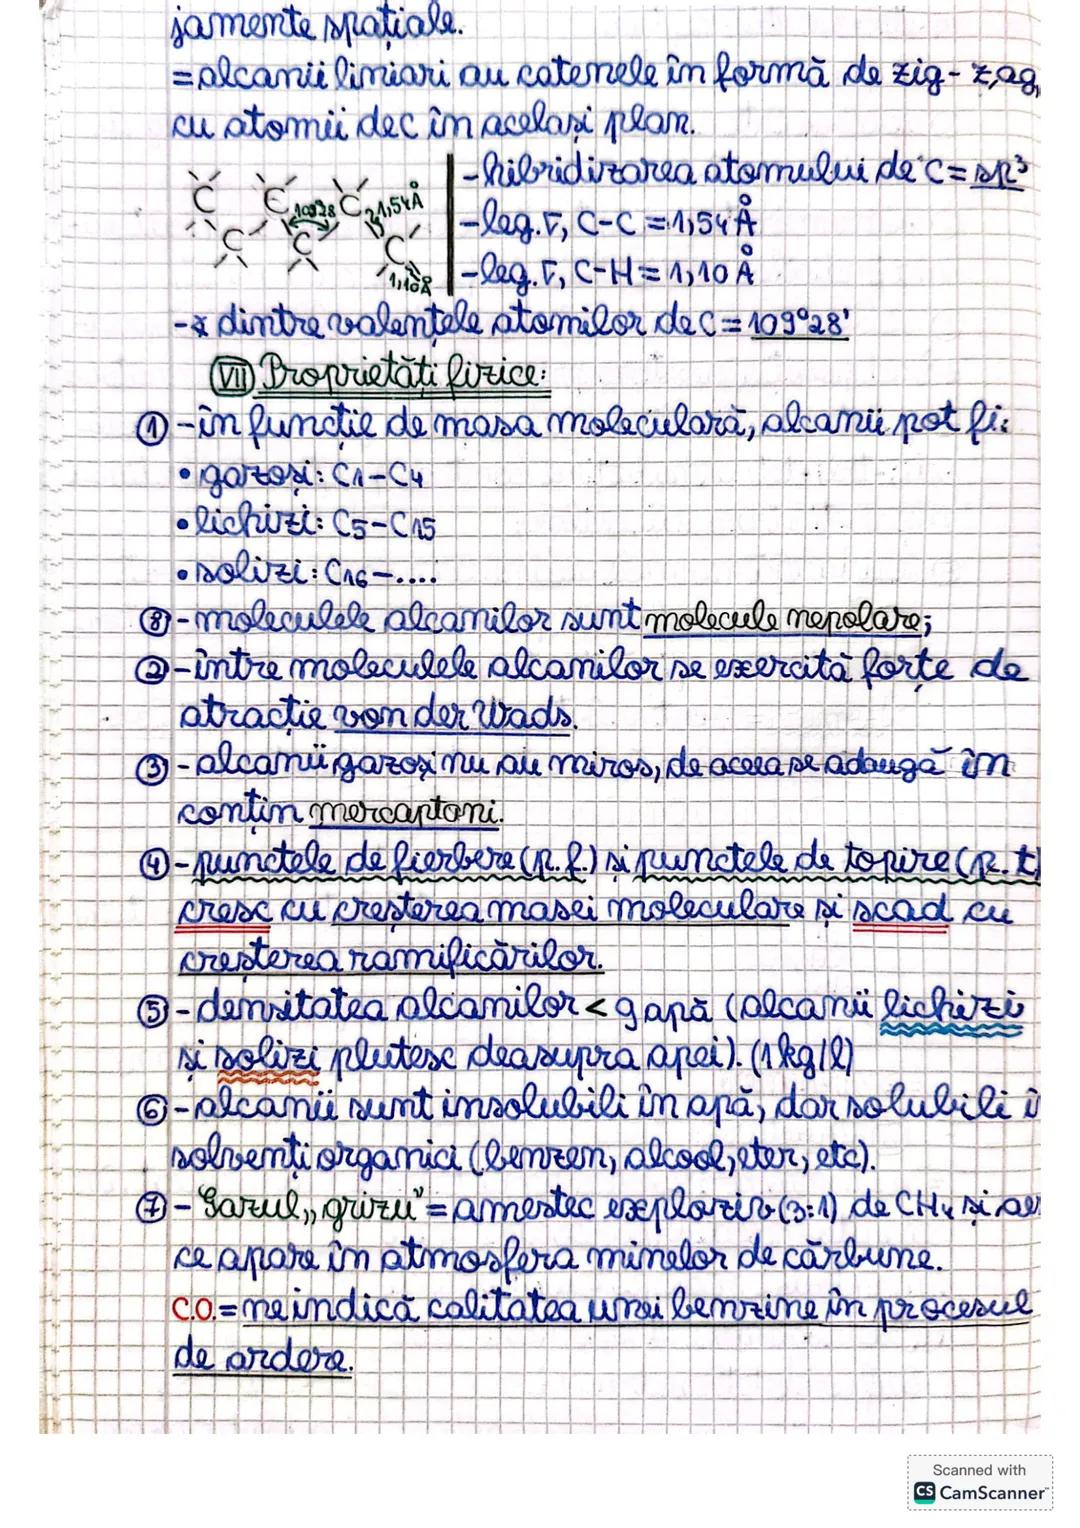 jamente spațiale.
=alcanii liniari au catenele în formă de zig-zag,
cu atomii de C în același plan.
C C 109°28' C 1,54Å
C C C
1,10Å
-hibridizarea atomului de C= sp³
-leg. σ, C-C = 1,54 Å
-leg. σ, C-H = 1,10 Å
-∢ dintre valențele atomilor de C = 109°28'
VII Proprietăți fizice:
① -în funcție de masa moleculară, alcanii pot fi:
• gazoși: C1-C4
• lichizi: C5-C15
• solizi: C16-....
⑧ -moleculele alcanilor sunt molecule nepolare;
② -între moleculele alcanilor se exercită forțe de
atracție van der Wads.
③ -alcanii gazoși nu au miros, de aceea se adaugă în
conțin mercaptani.
④ -punctele de fierbere (p.f.) și punctele de topire (p.t)
cresc cu creșterea masei moleculare și scad cu
creșterea ramificărilor.
⑤ -densitatea alcanilor < g apă (alcanii lichizi
și solizi plutesc deasupra apei). (1kg/l)
⑥ -alcanii sunt insolubili în apă, dar solubili î
solvenți organici (benzen, alcool, eter, etc).
⑦ -Gazul „grizu" = amestec exploziv (3:1) de CH4 și ae
ce apare în atmosfera minelor de cărbune.
C.O.= ne indică calitatea unei benzine în procesul
de ardere.
Scanned with
CS CamScanner